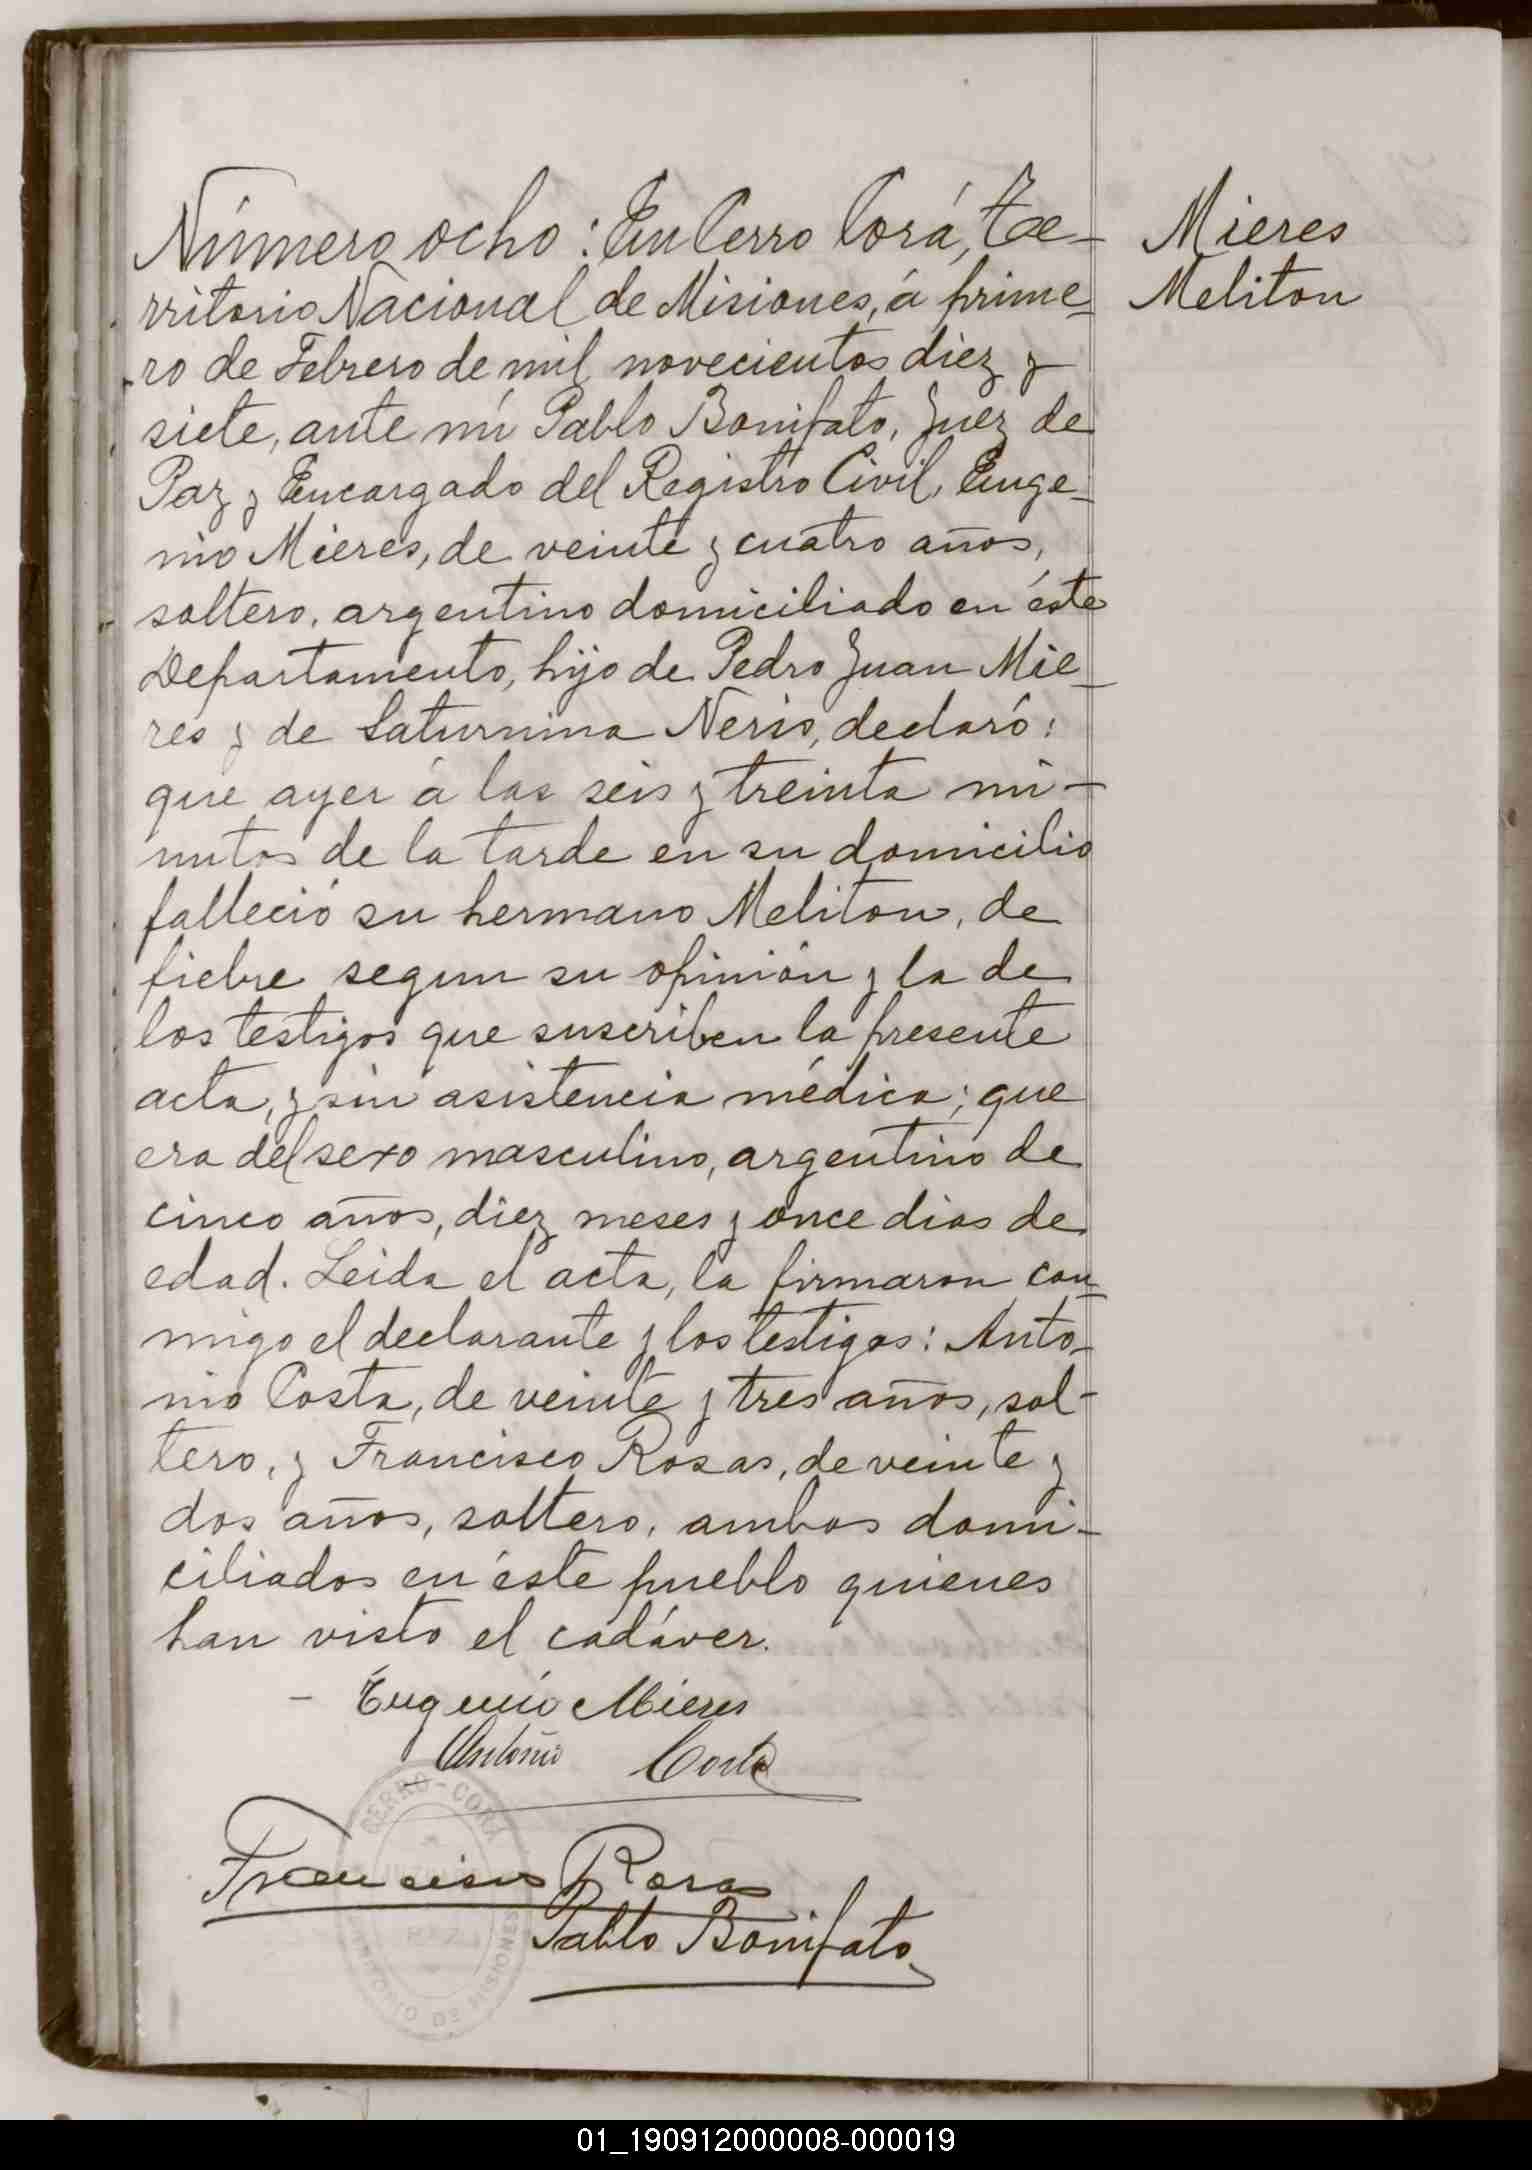 Número ocho: En Cerro Corá, Te-
rritorio Nacional de Misiones, á prime-
ro de Febrero de mil novecientos diez y
siete, ante mí Pablo Bonifato, Juez de
Paz y Encargado del Registro Civil, Euge-
nio Mieres, de veinte y cuatro años,
soltero, argentino domiciliado en éste
Departamento, hijo de Pedro Juan Mie-
res y de Saturnina Neris, declaró:
que ayer á las seis y treinta mi-
nutos de la tarde en su domicilio
falleció su hermano Meliton, de
fiebre segun su opinión y la de
los testigos que suscriben la presente
acta, y sin asistencia médica; que
era del sexo masculino, argentino de
cinco años, diez meses y once dias de
edad. Leida el acta, la firmaron con-
migo el declarante y los testigos: Anto-
nio Costa, de veinte y tres años, sol-
tero, y Francisco Rosas, de veinte y
dos años, soltero, ambos domi-
ciliados en éste pueblo quienes
han visto el cadáver.
Mieres
Meliton
- Eugenio Mieres
Antonio Costa
Francisco Rosas
Pablo Bonifato
CERRO-CORA
PAZ
TERRITORIO DE MISIONES
01_190912000008-000019